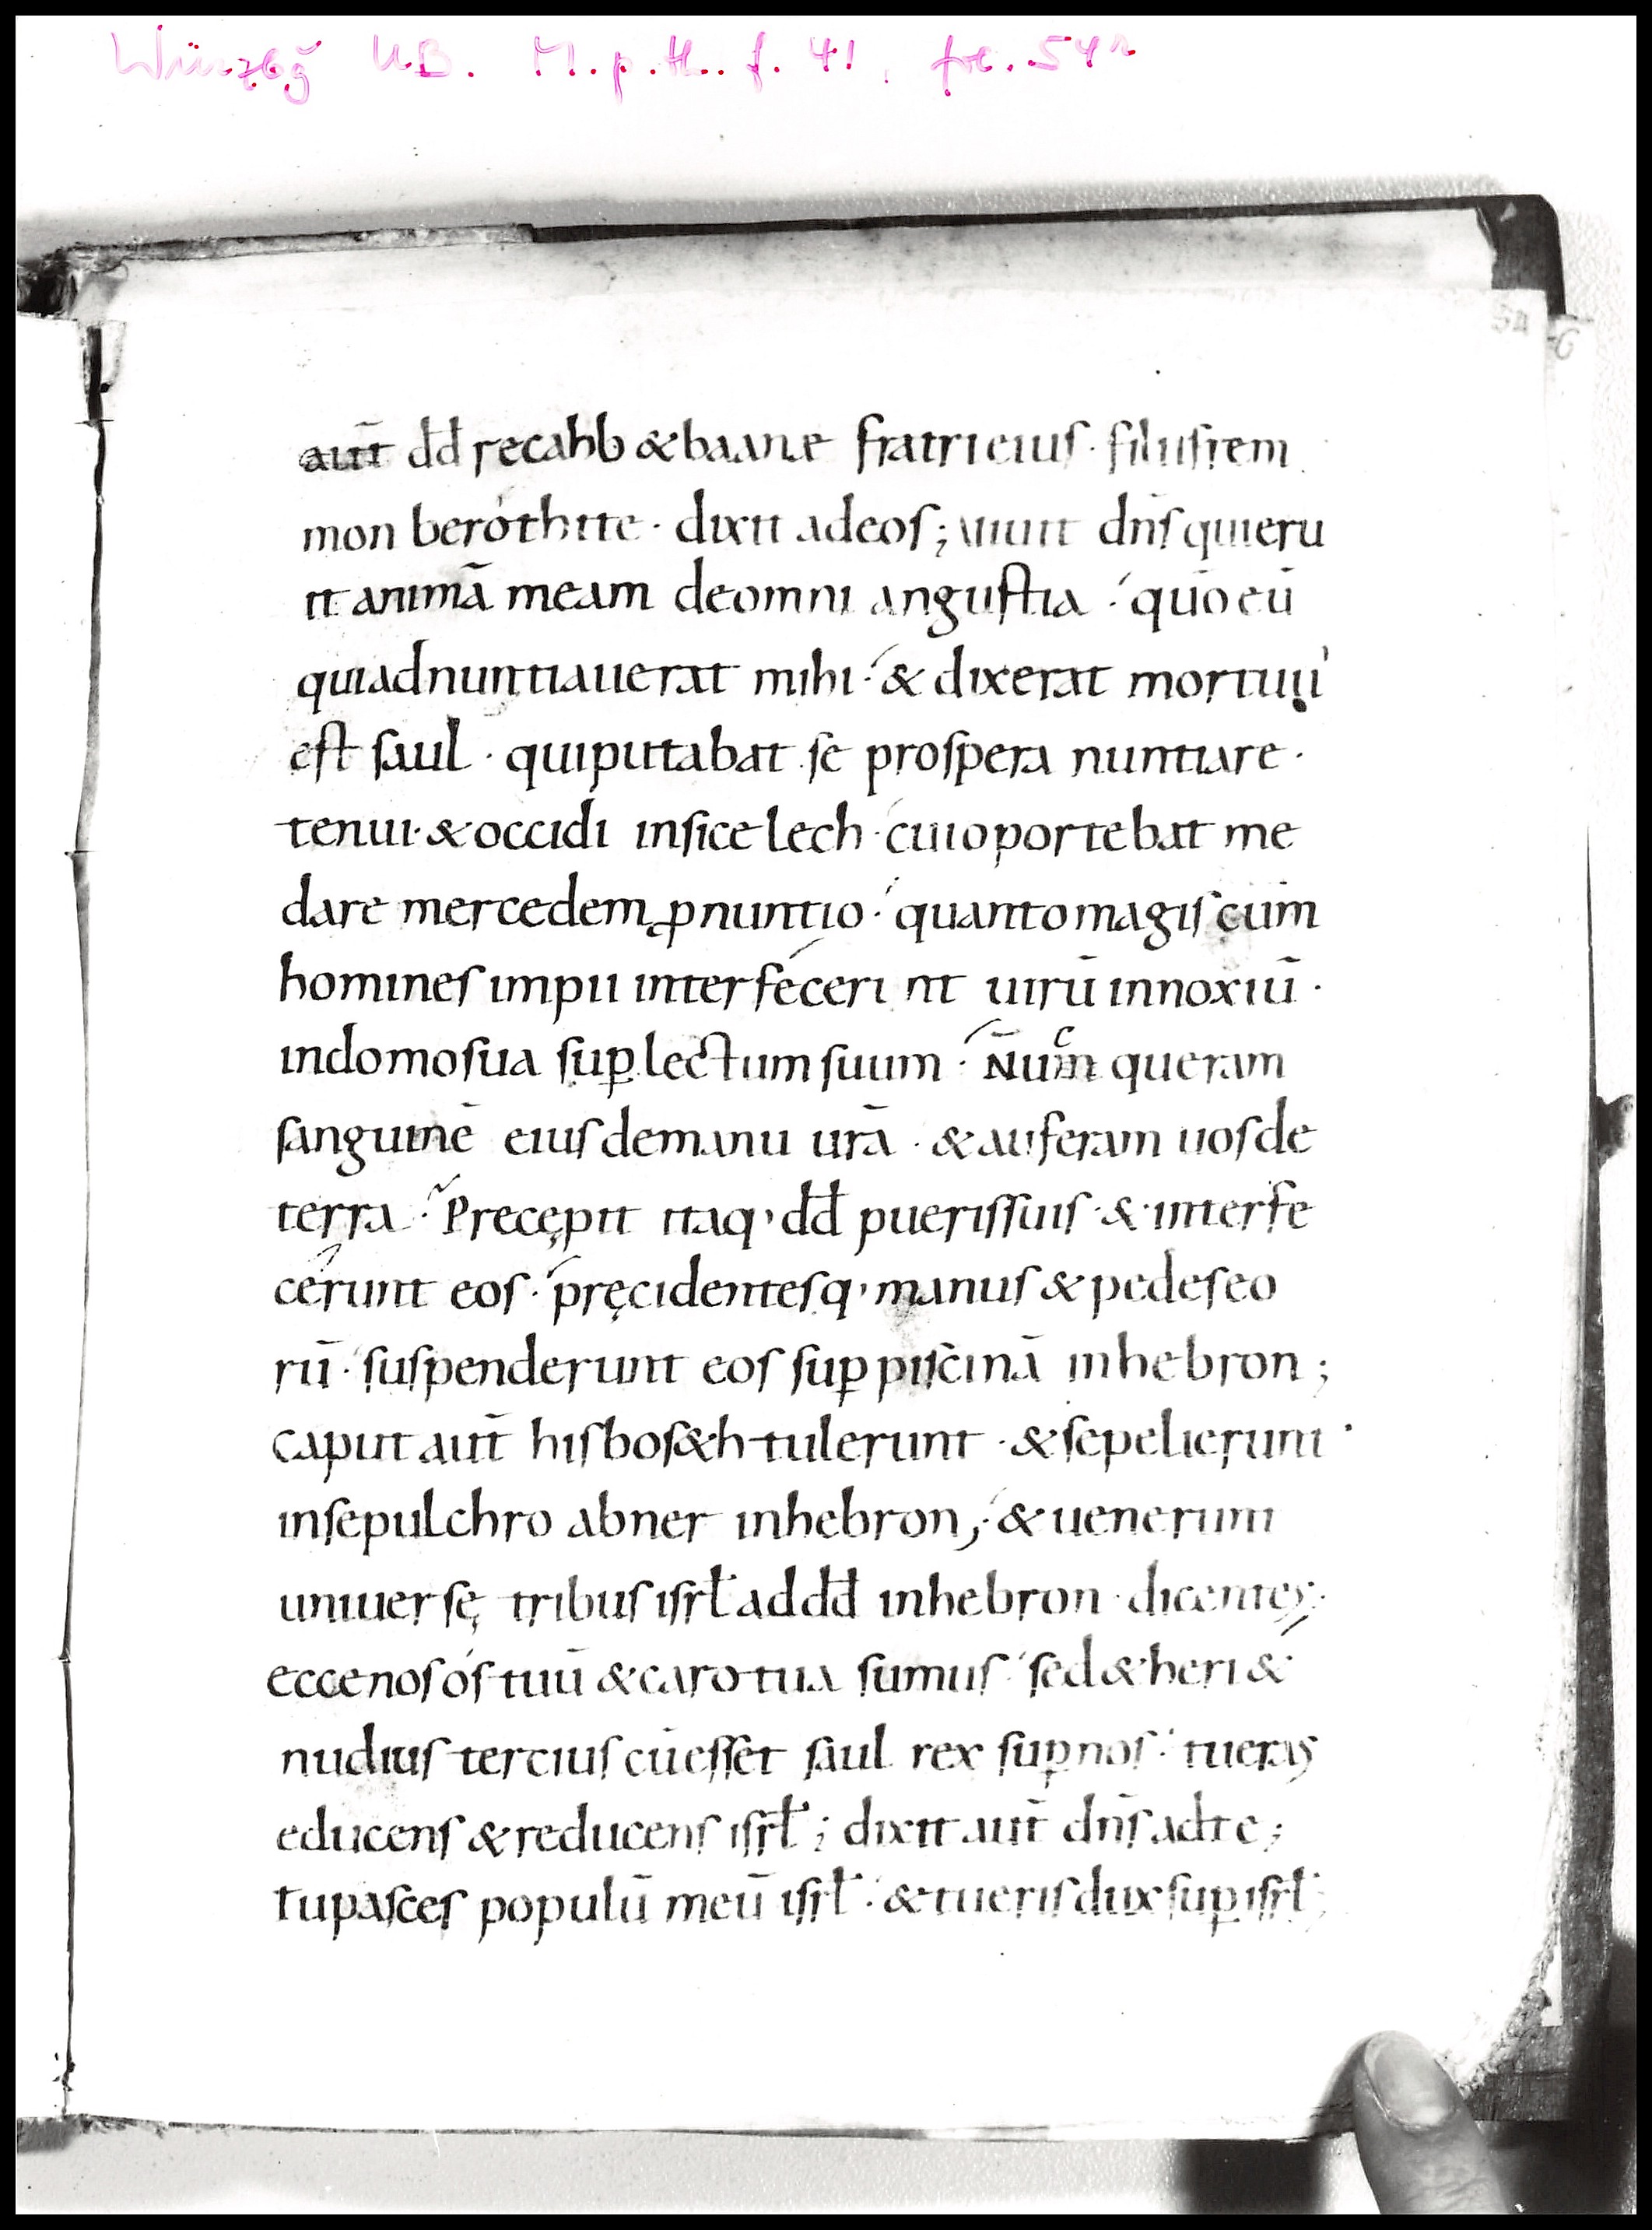 Würzbg UB. M.p.th. f. 41, fol. 54r
54
aut̄ dd̄ recahb & baane fratri eius · filiis rem
mon beróthite · dixit ad eos ; uiuit dn̄s qui eru
it animā meam de omni angustia · quō eū
qui adnuntiauerat mihi · & dixerat mortuu'
est saul · qui putabat se prospera nuntiare ·
tenui · & occidi in sicelech · cui oportebat me
dare mercedem ꝓ nuntio · quanto magis cum
homines impii interféceri nt uirū innoxiū ·
in domo sua suꝑ lectum suum · Nūm̄ᶜ queram
sanguinē eius de manu urā · & auferam uos de
terra · Precępit itaq, dd̄ pueris suis · & · interfe
cérunt eos · pręcidentesq, manus & pedes eo
rū · suspenderunt eos suꝑ piscinā in hebron ;
Caput aut̄ hisbos&h tulerunt · & sepelierunt ·
in sepulchro abner in hebron ; & uenerunt
uniuersę tribus isrł ad dd̄ in hebron · dicentes ·
ecce nos ós tuū & caro tua sumus · sed & heri &
nudius tercius cū esset saul rex suꝑ nos · tu eras
educens & reducens isrł ; dixit aut̄ dn̄s ad te ;
tu pasces populū meū isrł · & tu eris dux suꝑ isrł ;